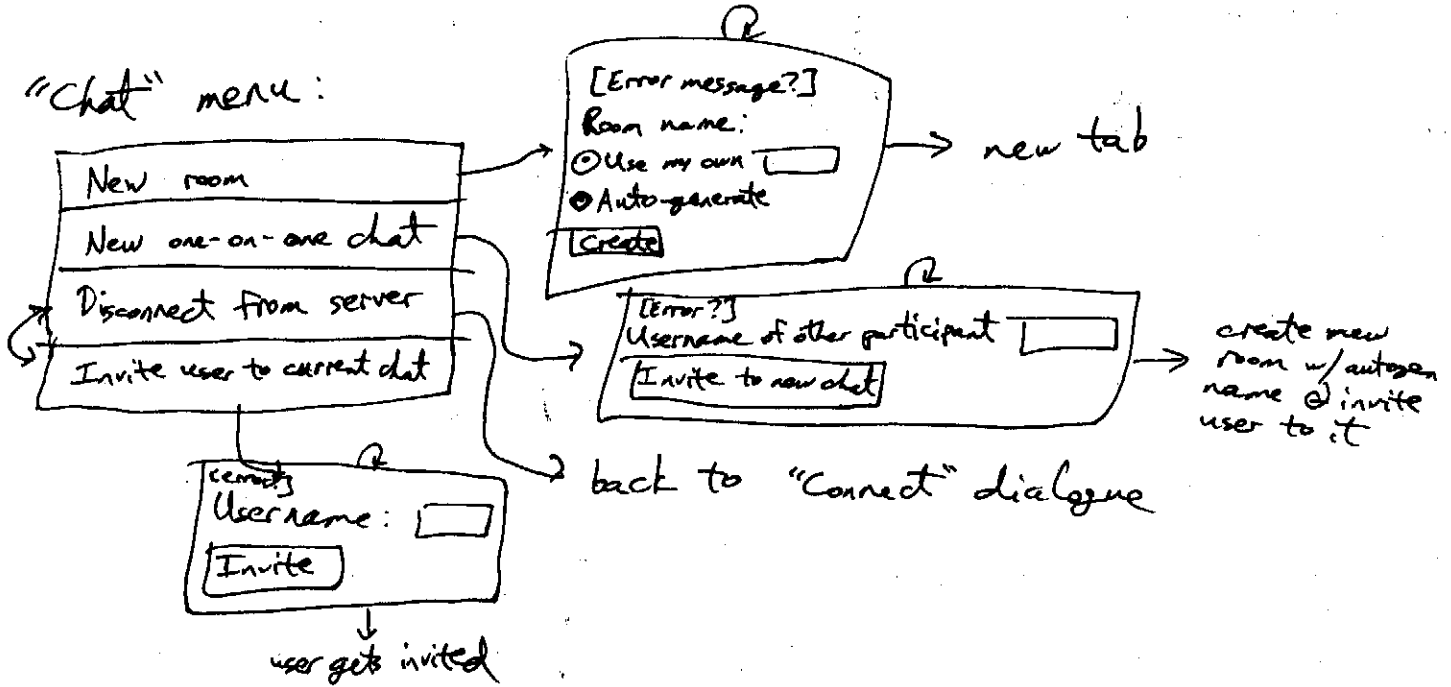 "Chat" menu:
New room
New one-on-one chat
Disconnect from server
Invite user to current chat
[Error message?]
Room name:
Use my own
Auto-generate
Create
new tab
[Error?]
Username of other participant
Invite to new chat
create new
room w/autogen
name & invite
user to it
back to "Connect" dialogue
[error?]
Username:
Invite
user gets invited